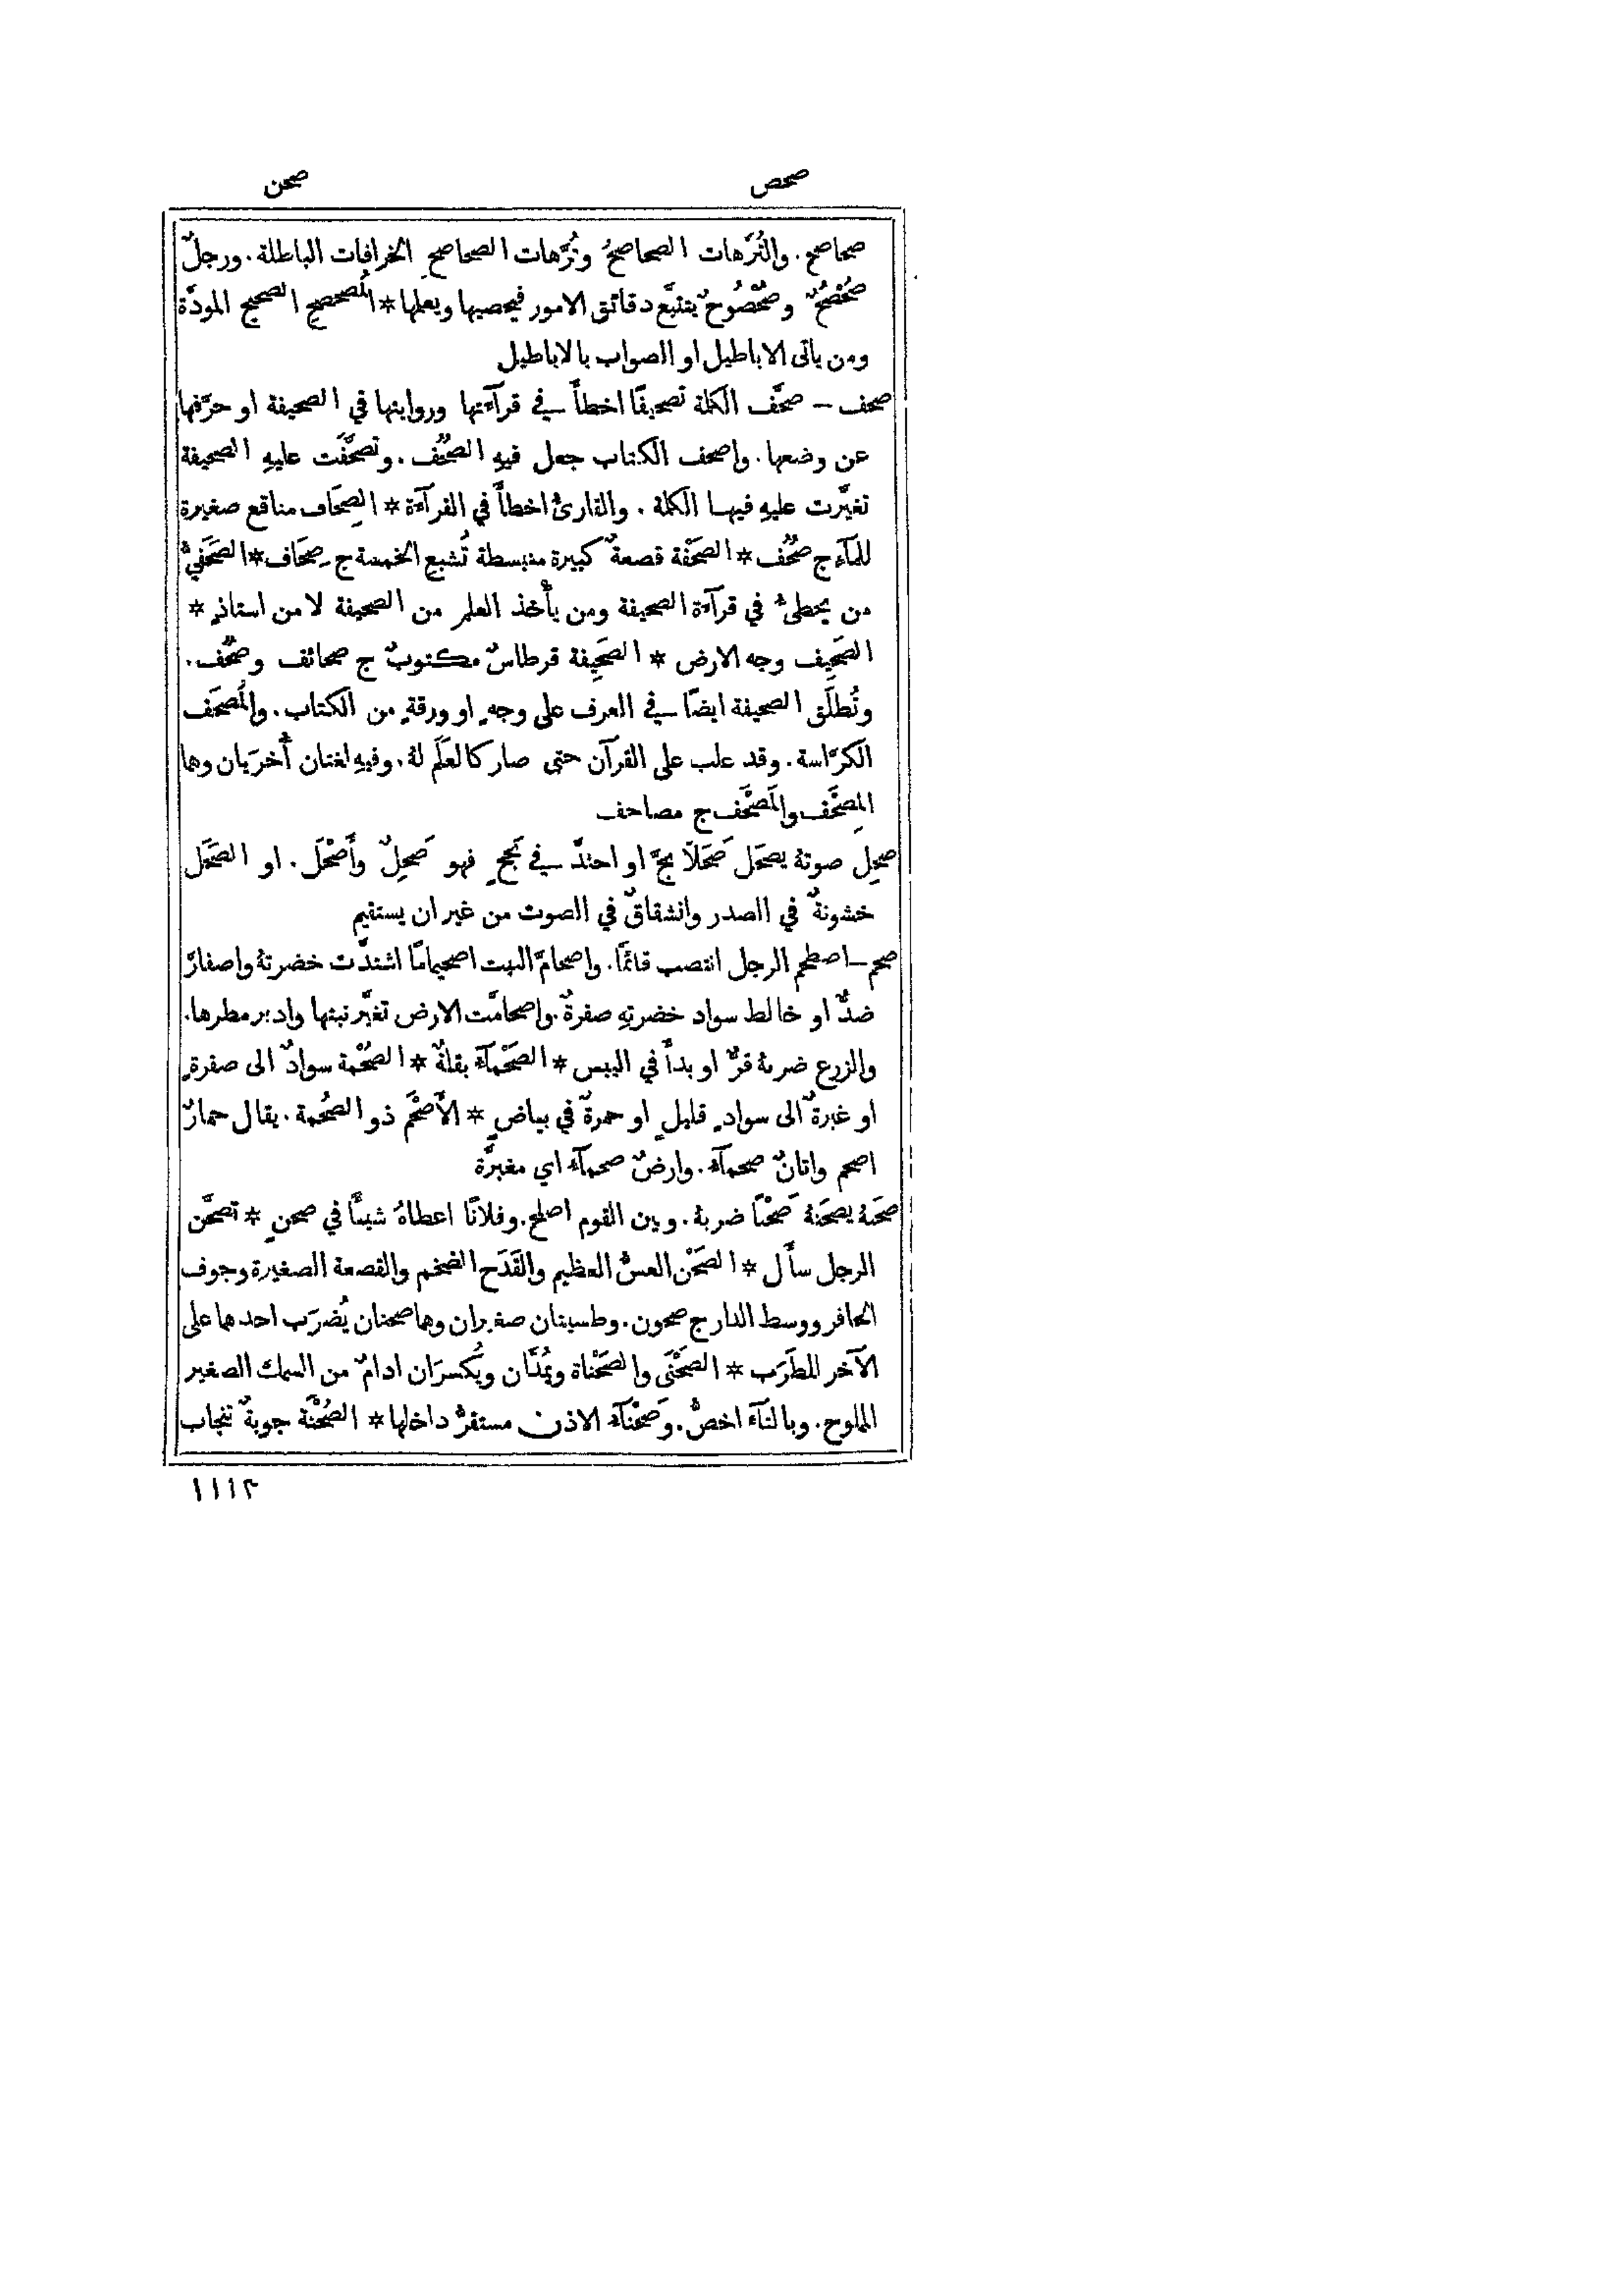 صحص
صحن
صحاصح. والتُرَّهات الصحاصحُ وتُرَّهات الصحاصحِ الخرافات الباطلة. ورجلٌ
صُحْصُحٌ وصُحْصُوحٌ يتتبَّع دقائق الامور فيحصيها ويعلمها * المُصحصِح الصحيح المودَّة
ومن ياتى الاباطيل او الصواب بالاباطيل
صحف — صحَّف الكلمة تصحيفًا اخطأَ في قرآءَتها وروايتها في الصحيفة او حرَّفها
عن وضعها. واصحف الكتاب جعل فيهِ الصُحُف. وتصحَّفَت عليهِ الصحيفة
تغيَّرت عليهِ فيها الكلمة. والقارئُ اخطأَ في القرآءَة * الصِحَاف مناقع صغيرة
للمآءِ ج صُحُف * الصَحْفة قصعةٌ كبيرة منبسطة تُشبع الخمسة ج صِحَاف * الصَحَفيُّ
من يخطئُ في قرآءَة الصحيفة ومن يأْخذ العلم من الصحيفة لا من استاذٍ *
الصَحِيف وجه الارض * الصَحِيفة قرطاسٌ مكتوبٌ ج صحائف وصُحُف.
وتُطلَق الصحيفة ايضًا في العرف على وجهٍ او ورقةٍ من الكتاب. والمُصحَف
الكرَّاسة. وقد غلب على القرآن حتى صار كالعَلَم لهُ. وفيهِ لغتان أُخرَيان وهما
المِصحَف والمَصحَف ج مصاحف
صحِل صوتهُ يصحَل صَحَلًا بحَّ او احتدَّ في بَحَحٍ فهو صَحِلٌ وأَصْحَل. او الصَحَل
خشونةٌ في الصدر وانشقاقٌ في الصوت من غير ان يستقيم
صحم — اصطحم الرجل انتصب قائمًا. واصحامَّ النبت اصحيمامًا اشتدَّت خضرتهُ واصفارَّ
ضدٌّ او خالط سواد خضرتهِ صفرةٌ. واصحامَّت الارض تغيَّر نبتها وادبر مطرها.
والزرع ضربهُ قرٌّ او بدأَ في اليبس * الصَحْمَآءُ بقلةٌ * الصُحْمة سوادٌ الى صفرةٍ
او غبرةٌ الى سوادٍ قليلٍ او حمرةٌ في بياضٍ * الأَصْحَم ذو الصُحْمة. يقال حمارٌ
اصحم واتانٌ صحمآءُ. وارضٌ صحمآءُ اي مغبرَّة
صحَنهُ يصحَنهُ صَحْنًا ضربهُ. وبين القوم اصلح. وفلانًا اعطاهُ شيئًا في صحنٍ * تصحَّن
الرجل سأَل * الصَحْن العسُّ العظيم والقَدَح الضخم والقصعة الصغيرة وجوف
الحافر ووسط الدار ج صحون. وطسيتان صغيران وهما صحنان يُضرَب احدهما على
الآخر للطَرَب * الصَحْنَى والصَحْناة ويُمَدَّان ويُكسرَان ادامٌ من السمك الصغير
المملوح. وبالتآءِ اخصُّ. وصَحْنآءُ الاذن مستقرُّ داخلها * الصُحْنَة جوبةٌ تنجاب
١١١٢